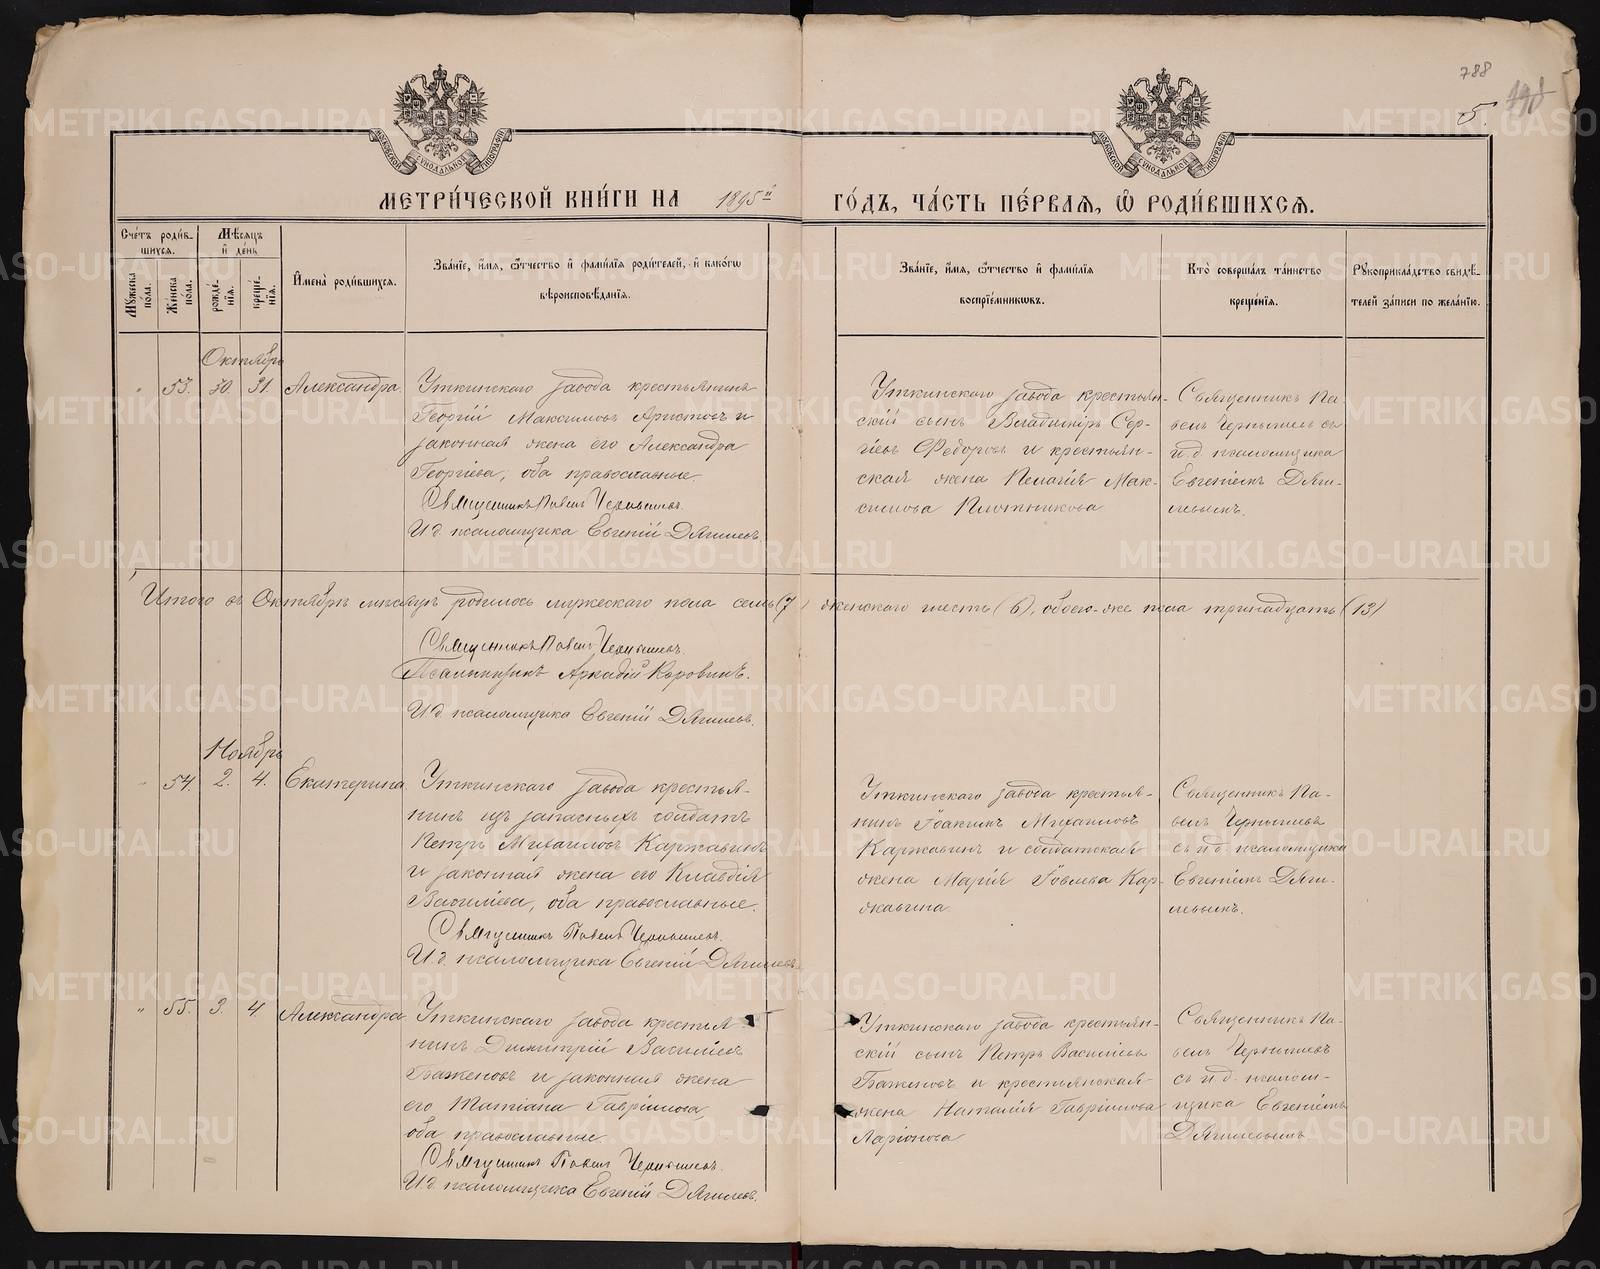 788
5.
МОСКОВСКОЙ СѴНОДАЛЬНОЙ ТИПОГРАФІИ
МОСКОВСКОЙ СѴНОДАЛЬНОЙ ТИПОГРАФІИ
МЕТРИ́ЧЕСКОЙ КНИ́ГИ НА 1895й ГО́ДЪ, ЧА́СТЬ ПЕ́РВАЯ, Ѽ РОДИ́ВШИХСЯ.
Сче́тъ роди́в-
шихся.
Му́жеска по́ла.
Же́нска по́ла.
Мѣ́сяцъ
и҆ де́нь
рожде́-
нїѧ.
креще́-
нїѧ.
И҆мена̀ роди́вшихся.
Зва́нїе, и҆́мя, ѻ҆́тчество и҆ фами́лїя роди́телей, и҆ како́гѡ
вѣроисповѣ́данїя.
Зва́нїе, и҆́мя, ѻ҆́тчество и҆ фами́лїя
воспрїе́мникѡвъ.
Кто̀ соверша́лъ та́инство
креще́нїя.
Рꙋкоприкла́дство свидѣ́-
телей за́писи по жела́нїю.
Октябрь
" 53. 30. 31. Александра.
Уткинскаго завода крестьянинъ
Георгій Максимовъ Аристовъ и
законная жена его Александра
Георгіева, оба православные.
Священникъ Павелъ Чернышевъ.
И.д. псаломщика Евгеній Дягилевъ.
Уткинскаго завода крестьян-
скій сынъ Владиміръ Сер-
гіевъ Федоровъ и крестьян-
ская жена Пелагія Мак-
симова Плотникова
Священникъ Па-
велъ Чернышевъ съ
и.д. псаломщика
Евгеніемъ Дяги-
левымъ.
Итого въ Октябрѣ мѣсяцѣ родилось мужескаго пола семь (7) женскаго шесть (6), обоего-же пола тринадцать (13)
Священникъ Павелъ Чернышевъ.
Псаломщикъ Аркадій Коровинъ.
И.д. псаломщика Евгеній Дягилевъ.
Ноябрь
" 54. 2. 4. Екатерина
Уткинскаго завода крестья-
нинъ изъ запасныхъ солдатъ
Петръ Михаиловъ Каржавинъ
и законная жена его Клавдія
Васильева, оба православные.
Священникъ Павелъ Чернышевъ.
И.д. псаломщика Евгеній Дягилевъ
Уткинскаго завода крестья-
нинъ Іоакимъ Михаиловъ
Каржавинъ и солдатская
жена Марія Іовлева Кар-
жавина.
Священникъ Па-
велъ Чернышевъ
съ и.д. псаломщика
Евгеніемъ Дяги-
левымъ.
" 55. 3. 4. Александра
Уткинскаго завода крестья-
нинъ Димитрій Васильевъ
Баженовъ и законная жена
его Татіана Гавріилова,
оба православные.
Священникъ Павелъ Чернышевъ.
И.д. псаломщика Евгеній Дягилевъ.
Уткинскаго завода крестьян-
скій сынъ Петръ Васильевъ
Баженовъ и крестьянская
жена Наталія Гавріилова
Ларіонова
Священникъ Па-
велъ Чернышевъ
съ и.д. псалом-
щика Евгеніемъ
Дягилевымъ.
METRIKI.GASO-URAL.RU